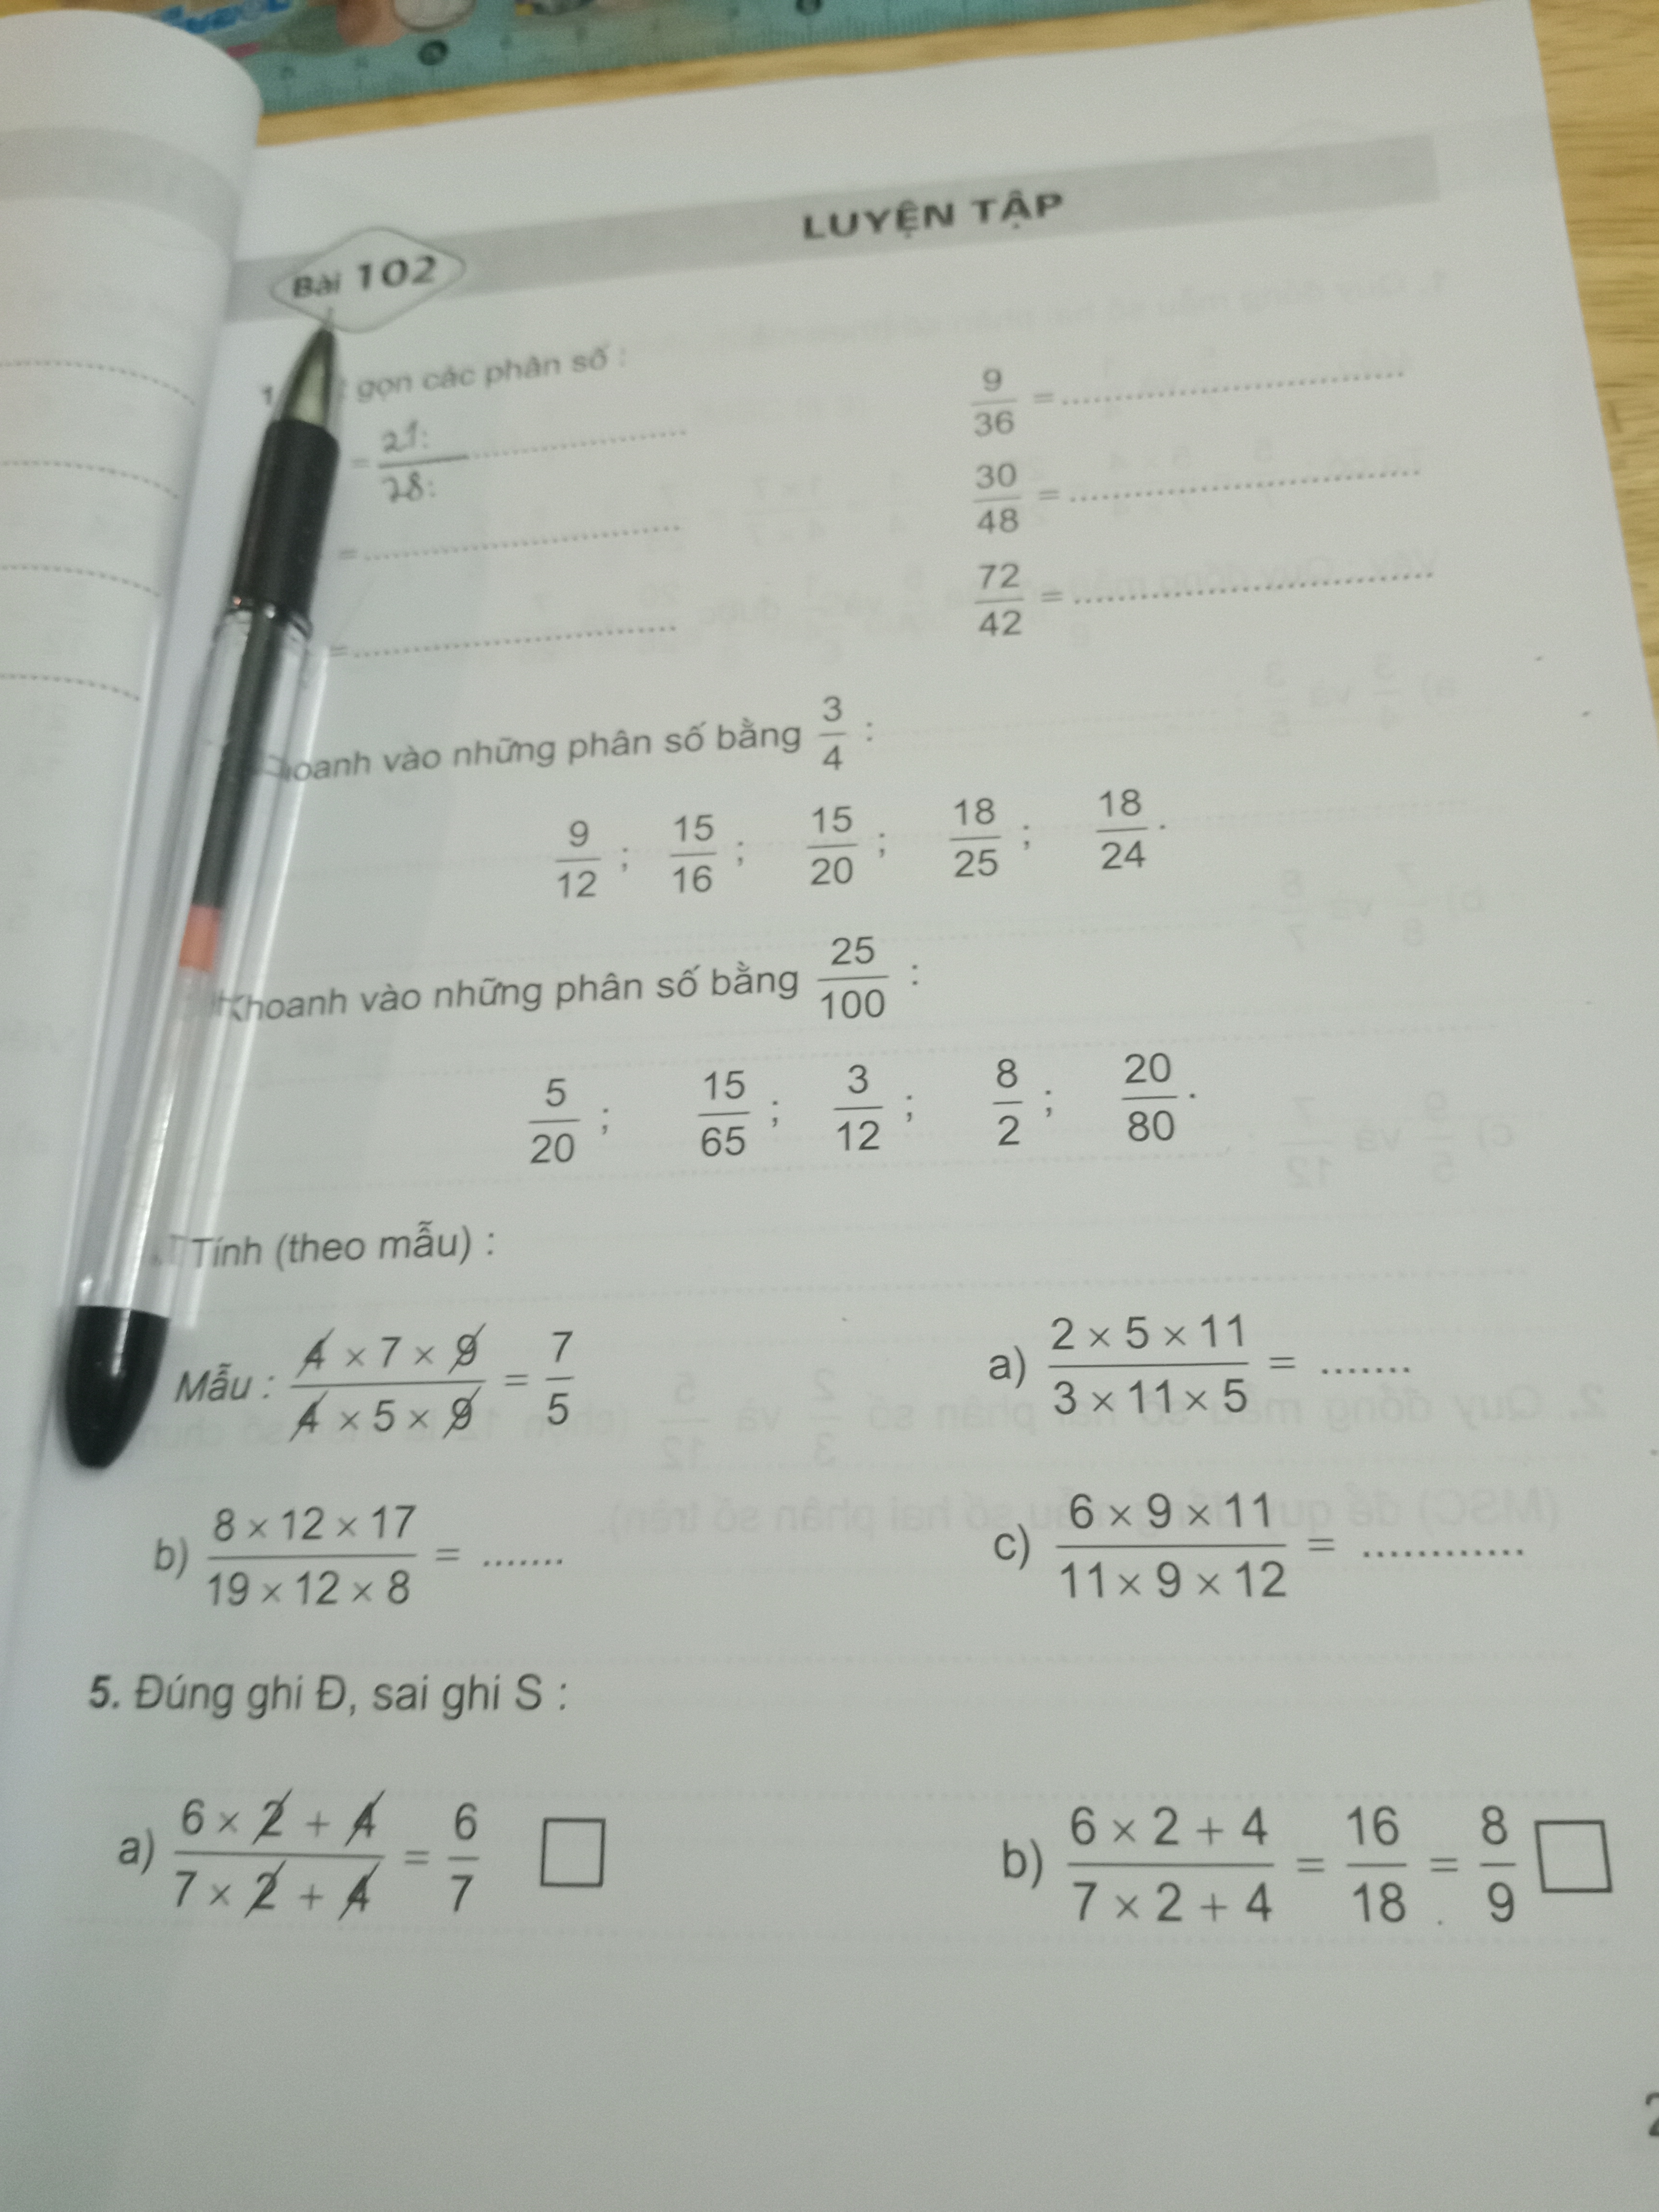 LUYỆN TẬP
Bài 102
1 gọn các phân số :
= 21: / 28: ....... 9/36 = .......
= ....... 30/48 = .......
= ....... 72/42 = .......
hoanh vào những phân số bằng 3/4 :
9/12 ; 15/16 ; 15/20 ; 18/25 ; 18/24 .
Khoanh vào những phân số bằng 25/100 :
5/20 ; 15/65 ; 3/12 ; 8/2 ; 20/80 .
Tính (theo mẫu) :
Mẫu : (4 × 7 × 9)/(4 × 5 × 9) = 7/5 a) (2 × 5 × 11)/(3 × 11 × 5) = .......
b) (8 × 12 × 17)/(19 × 12 × 8) = ....... c) (6 × 9 × 11)/(11 × 9 × 12) = ............
5. Đúng ghi Đ, sai ghi S :
a) (6 × 2 + 4)/(7 × 2 + 4) = 6/7 b) (6 × 2 + 4)/(7 × 2 + 4) = 16/18 = 8/9